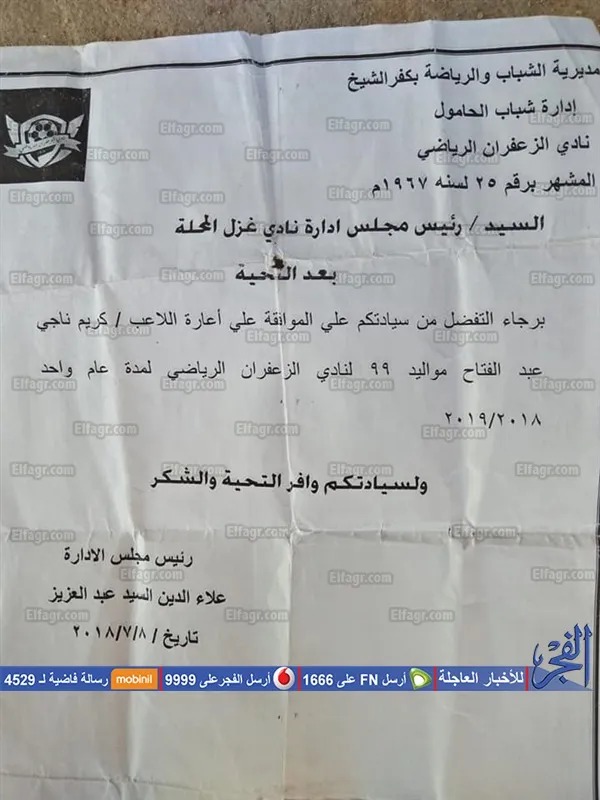 مديرية الشباب والرياضة بكفرالشيخ
إدارة شباب الحامول
نادي الزعفران الرياضي
المشهر برقم ٢٥ لسنه ١٩٦٧م
السيد / رئيس مجلس ادارة نادي غزل المحلة
بعد التحية
برجاء التفضل من سيادتكم علي الموافقة علي أعارة اللاعب / كريم ناجي
عبد الفتاح مواليد ٩٩ لنادي الزعفران الرياضي لمدة عام واحد
٢٠١٩/٢٠١٨
ولسيادتكم وافر التحية والشكر
رئيس مجلس الادارة
علاء الدين السيد عبد العزيز
تاريخ / ٢٠١٨/٧/٨
الفجر للأخبار العاجلة أرسل FN على 1666 أرسل الفجر على 9999 mobinil رسالة فاضية لـ 4529
Elfagr.com